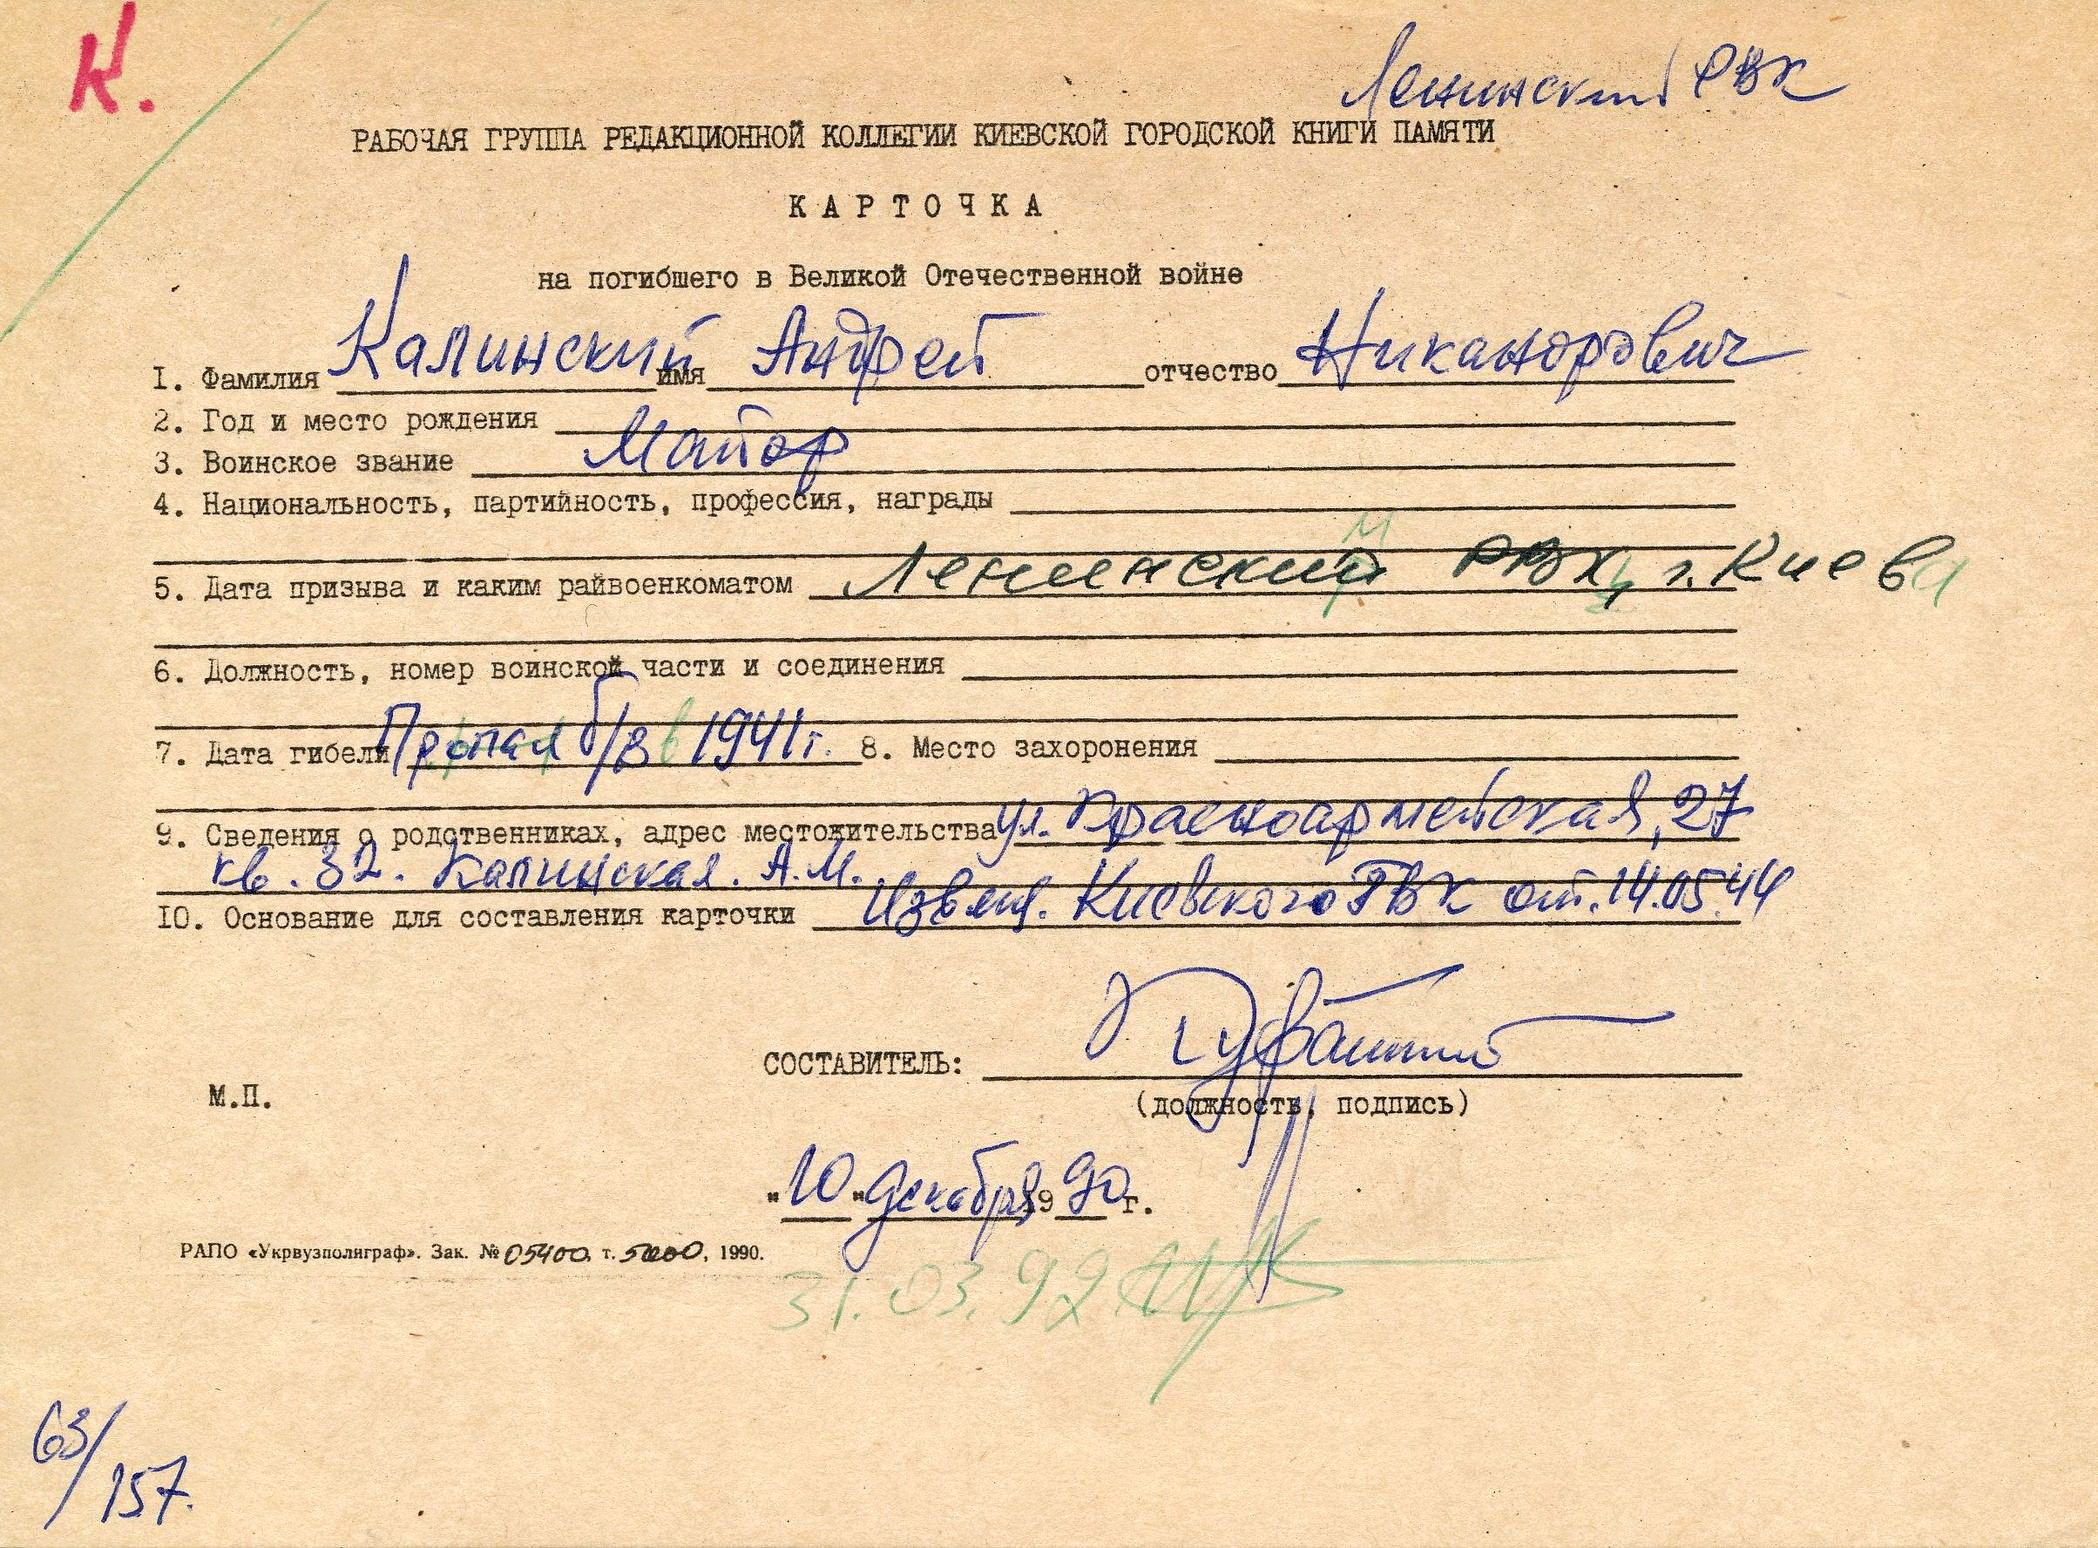 К.
Ленинский РВК
РАБОЧАЯ ГРУППА РЕДАКЦИОННОЙ КОЛЛЕГИИ КИЕВСКОЙ ГОРОДСКОЙ КНИГИ ПАМЯТИ
КАРТОЧКА
на погибшего в Великой Отечественной войне
I. Фамилия Калинский имя Андрей отчество Никанорович
2. Год и место рождения
3. Воинское звание Майор
4. Национальность, партийность, профессия, награды
5. Дата призыва и каким райвоенкоматом Ленинский РВК, г. Киева
6. Должность, номер воинской части и соединения
7. Дата гибели Пропал б/в в 1941 г. 8. Место захоронения
9. Сведения о родственниках, адрес местожительства ул. Красноармейская, 27
кв. 32. Калинская. А.М.
IO. Основание для составления карточки Извещ. Киевского ГВК от. 14.05.44
СОСТАВИТЕЛЬ:
М.П.
(должность, подпись)
"10" декабря 1990 г.
РАПО «Укрвузполиграф». Зак. № 05400 т. 5000, 1990.
31.03.92
63/157.